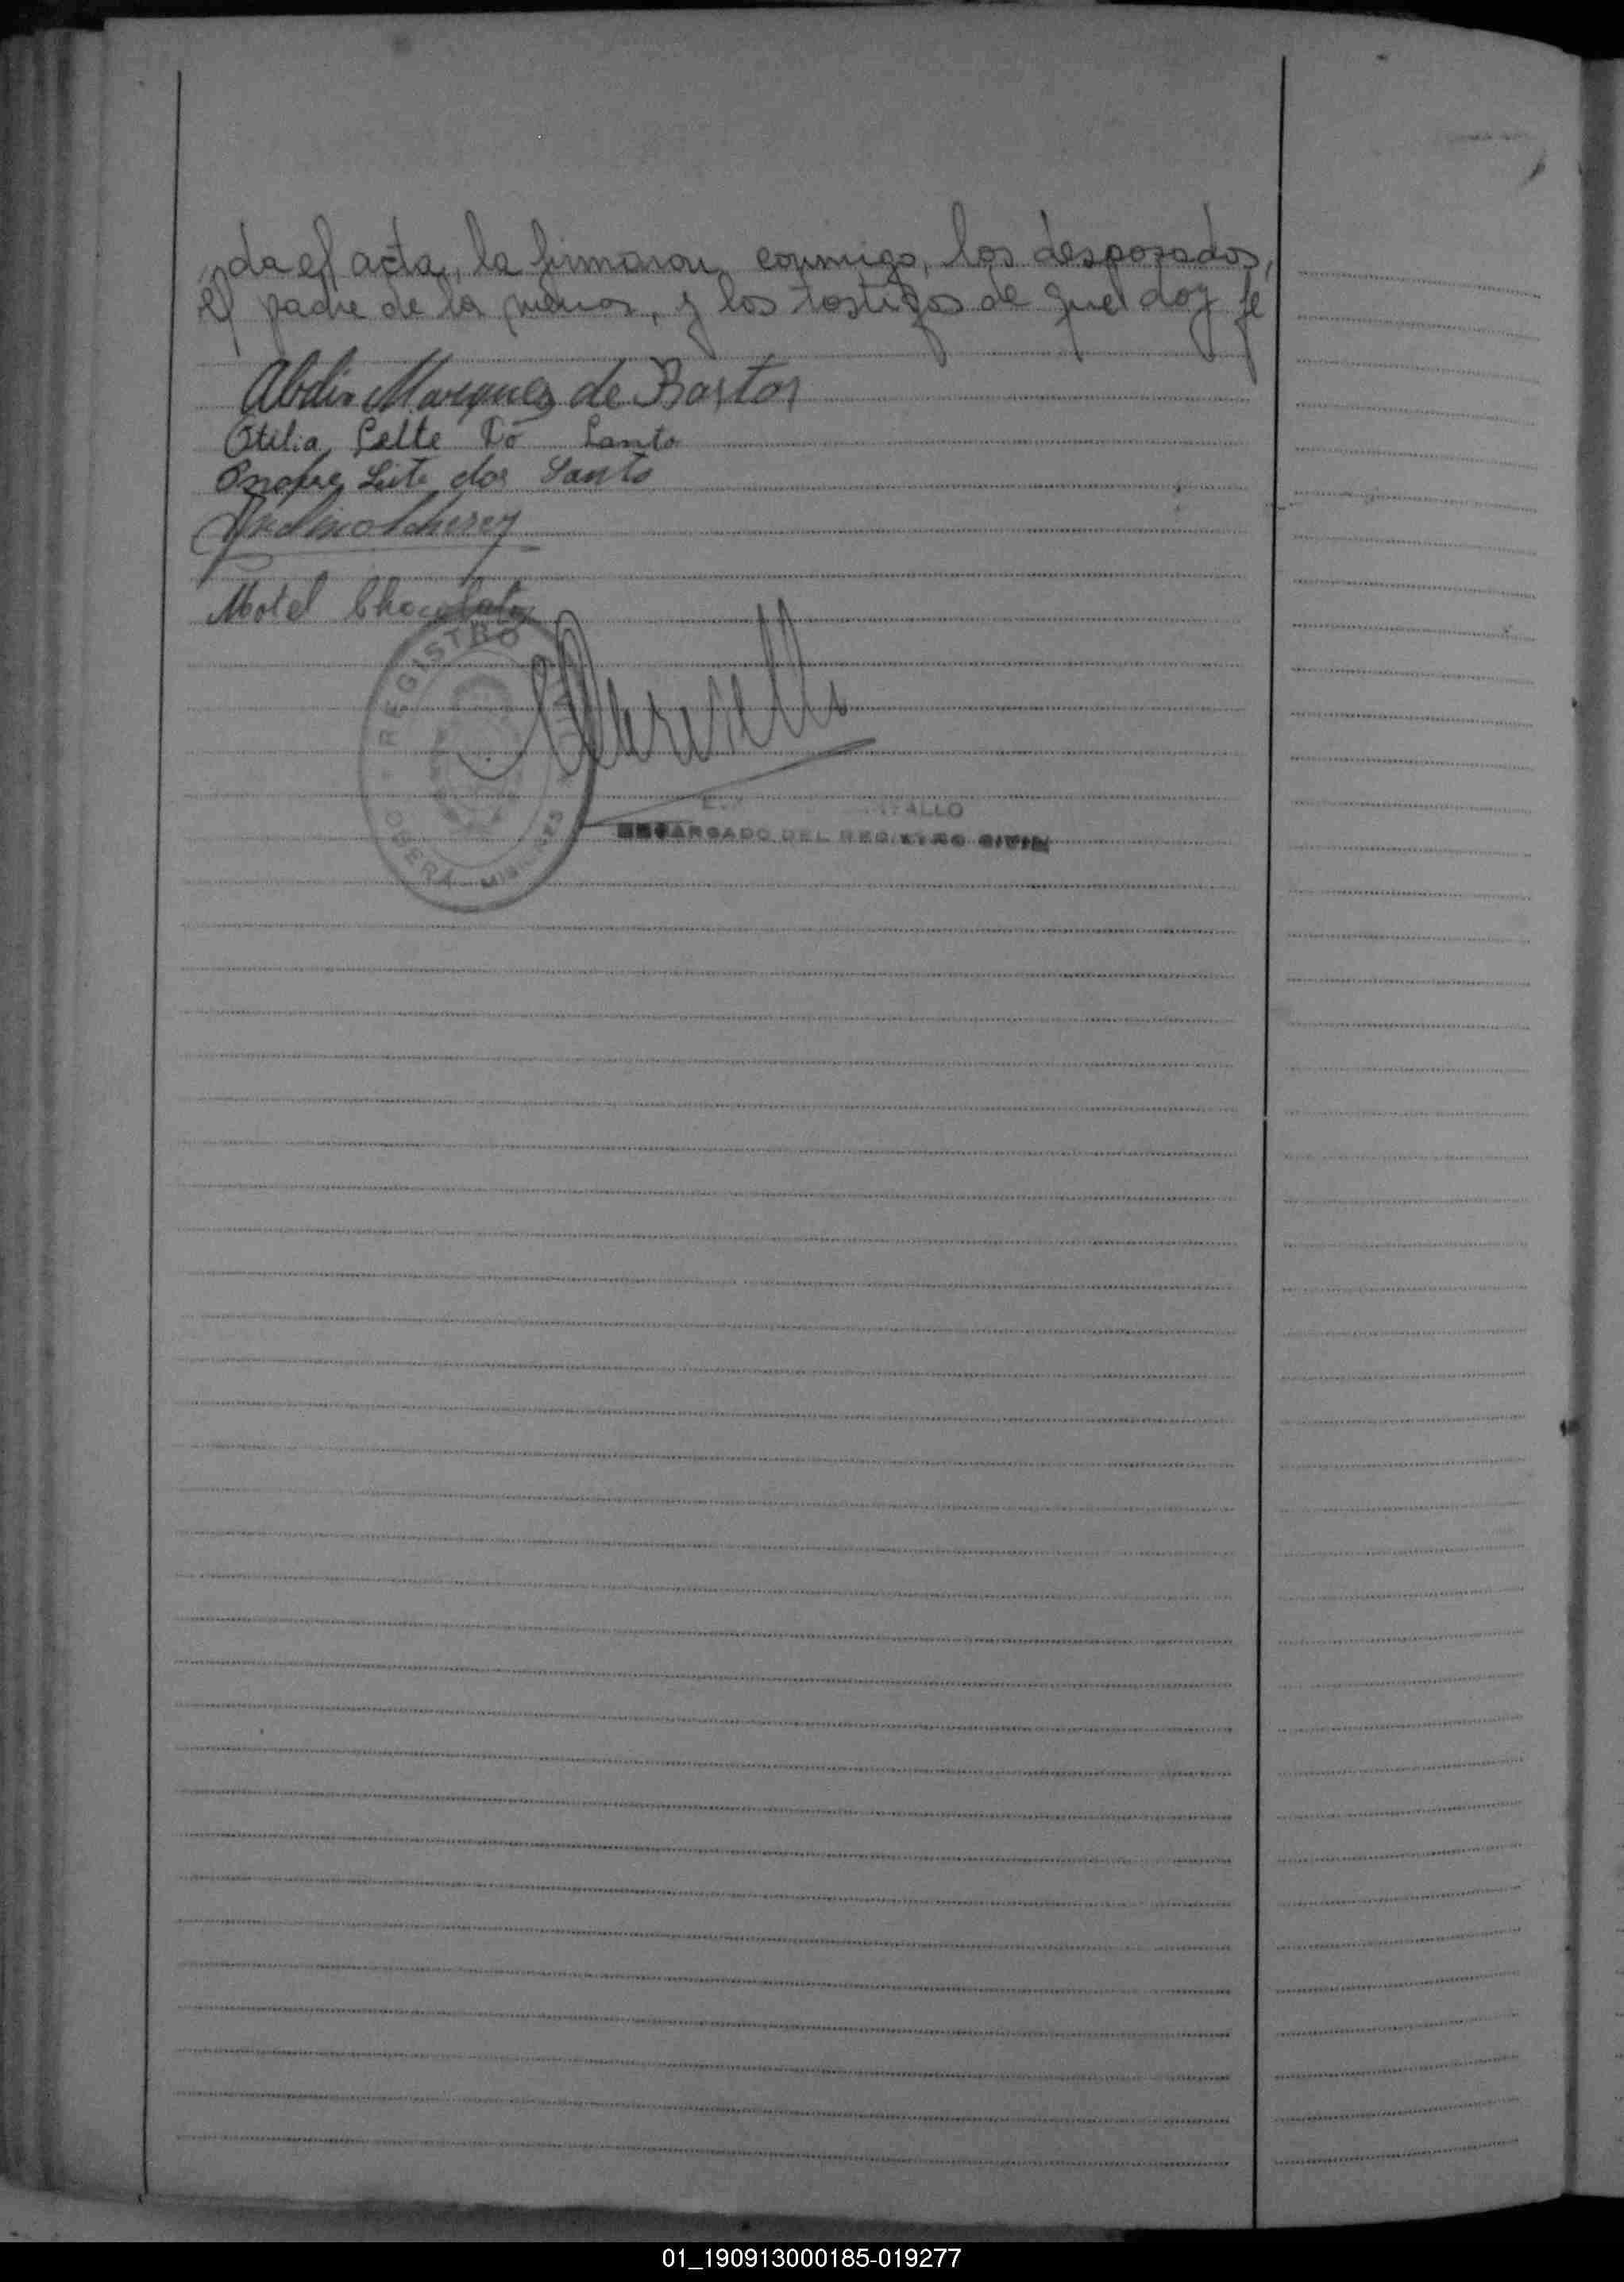 da el acta, la firmaron conmigo, los desposados,
el padre de la menor, y los testigos de que doy fe
Marques de Bastos
Otilia Leite Do Santo
Onofre Leite dos Santo
Motel
REGISTRO
OBERA MISIONES
ENCARGADO DEL REGISTRO CIVIL
01_190913000185-019277